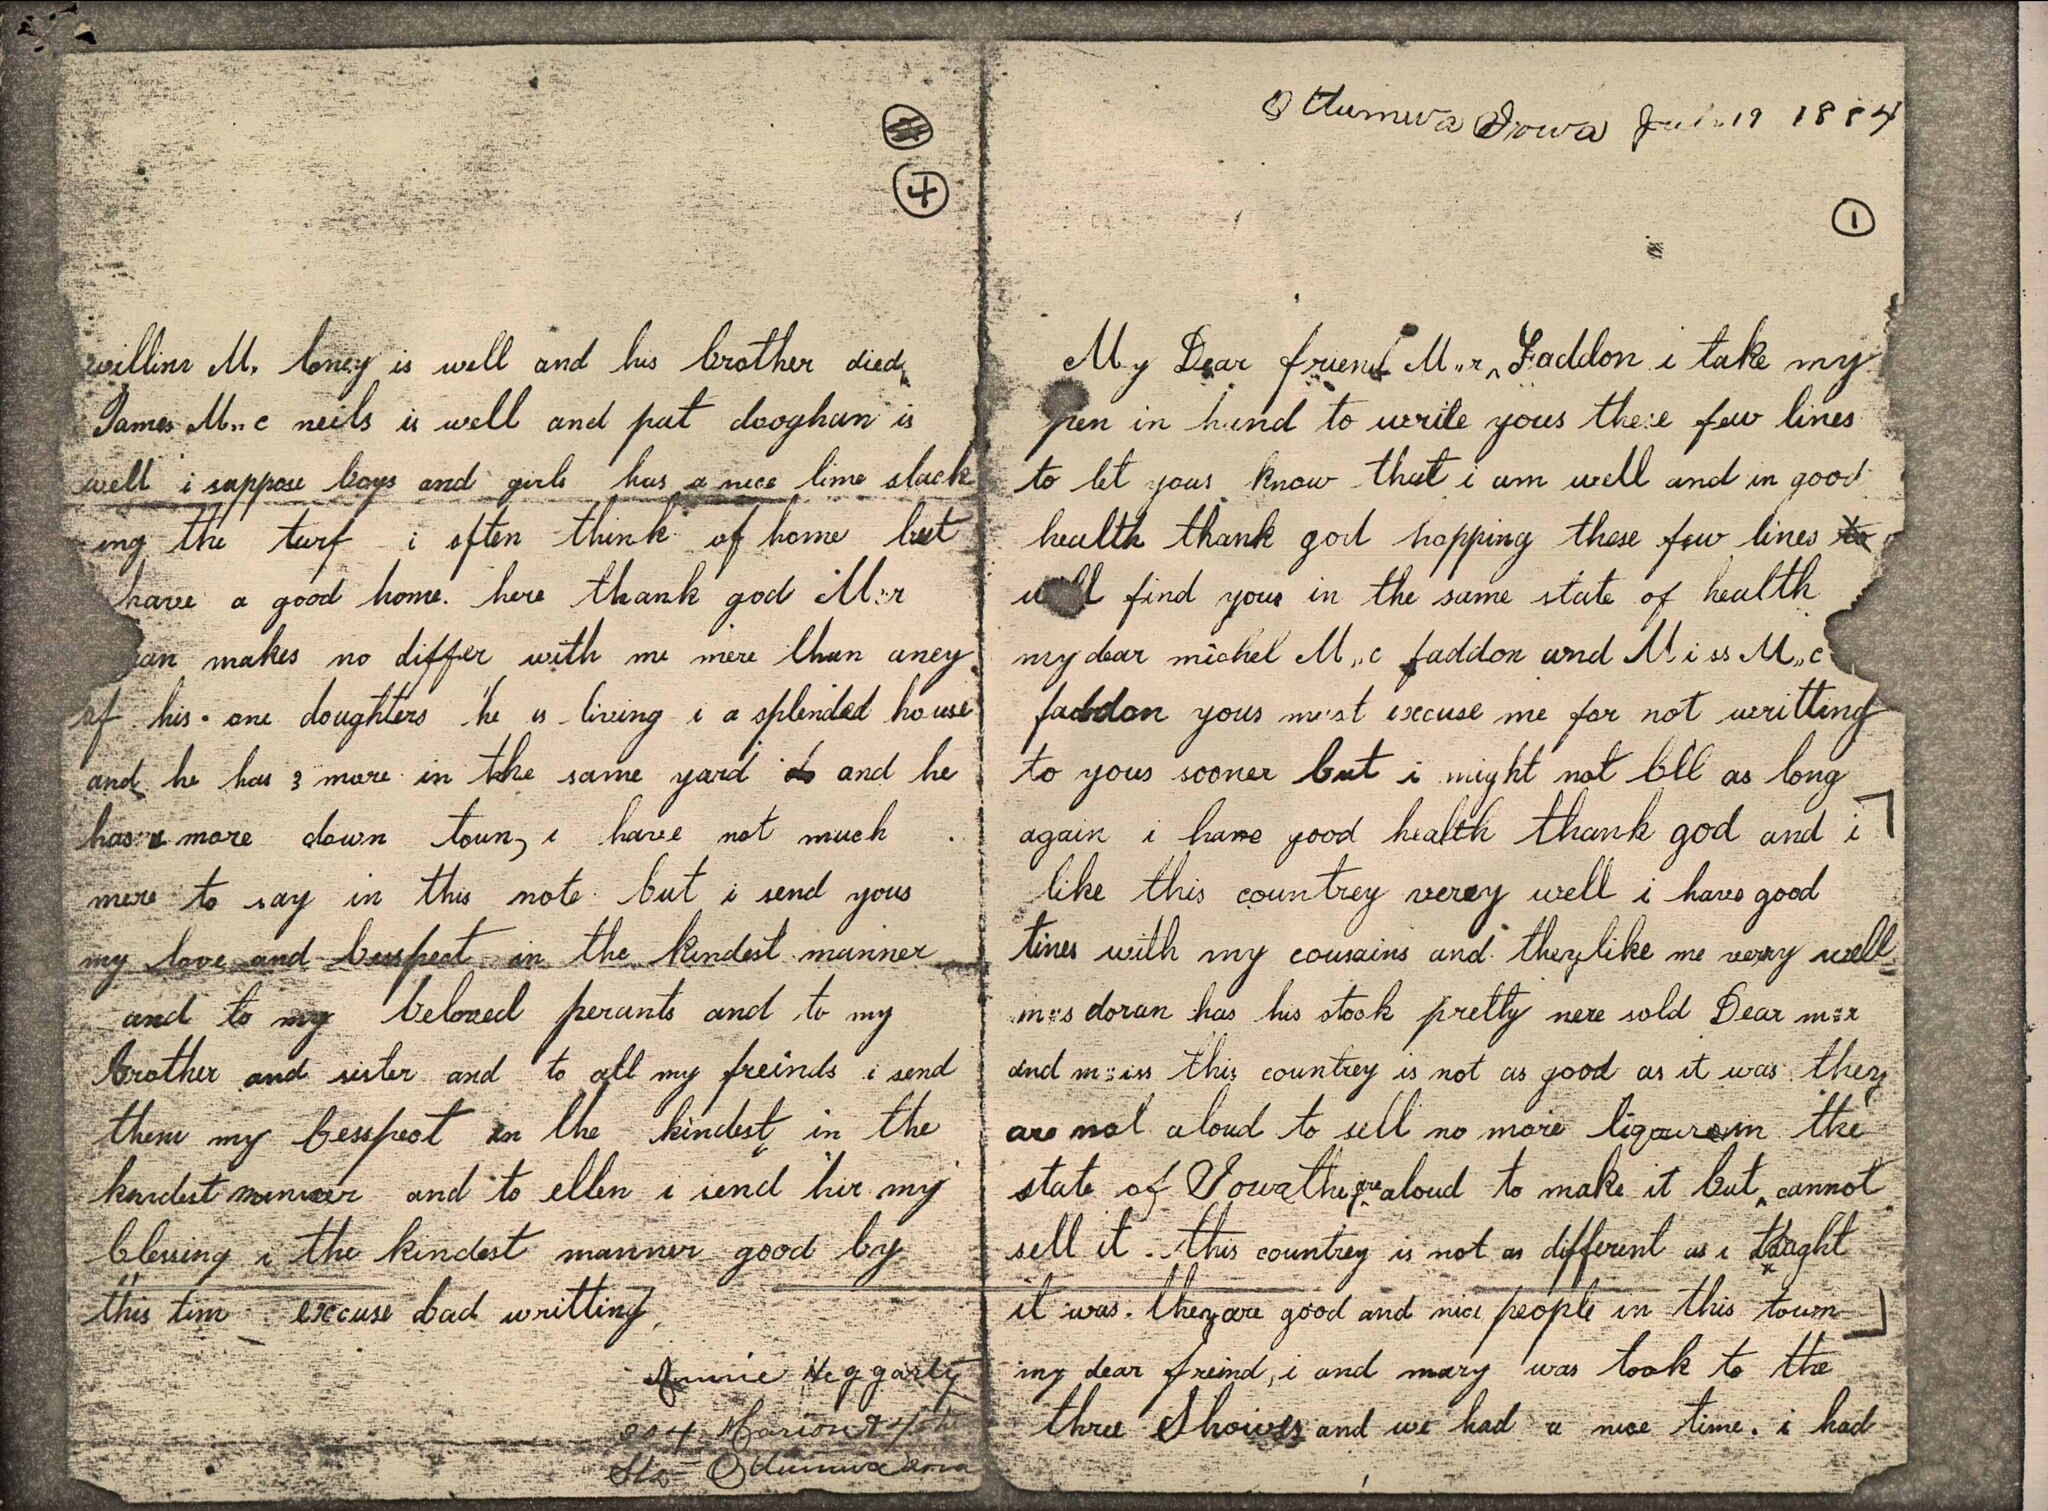 4
willim M. loney is well and his brother died
James M,,c neils is well and pat dooghan is
well i sappose boys and girls has a nice time slack
ing the turf i often think of home but
have a good home. here thank god M::r
makes no differ with me mere than aney
of his. one doughters he is living i a splended house
and he has 3 more in the same yard and he
has more down toun, i have not much
mere to say in this note but i send yous
my love and besspect in the kindest manner
and to my beloved perants and to my
brother and sister and to all my freinds i send
them my besspect in the kindest in the
kindest manner and to ellen i send her my
blessing i the kindest manner good by
this tim excuse bad writting,
Annie Heggarty
Marion & 4
Sts Ottumwa
Ottumwa Iowa 19 1884
1
My Dear friend M,,r Faddon i take my
pen in hand to write yous these few lines
to let yous know that i am well and in good
health thank god hopping these few lines
will find yous in the same state of health
my dear michel M,,c faddon and Miss M,,c
faddon yous must excuse me for not writting
to yous sooner but i might not bll as long
again i have good health thank god and i
like this countrey verey well i have good
times with my cousains and they like me verry well
m::s doran has his stook pretty nere sold Dear m::r
and m::iss this countrey is not as good as it was they
are not aloud to sell no more liqour in the
state of Iowa they are aloud to make it but cannot
sell it. this countrey is not as different as i thaght
it was. they are good and nice people in this town
my dear freind, i and mary was took to the
three Shows and we had a nice time. i had